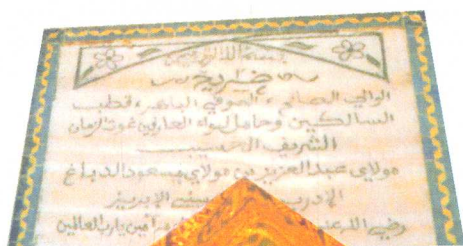 بسم الله الرحمن الرحيم
ضريح
الوالي الصالح، الصوفي الباهر، قطب
السالكين وحامل لواء العارفين غوث الزمان
الشريف الحسيب
مولاي عبد العزيز بن مولاي مسعود الدباغ
الإدريسي الإبريز
رضي الله عنه آمين يارب العالمين